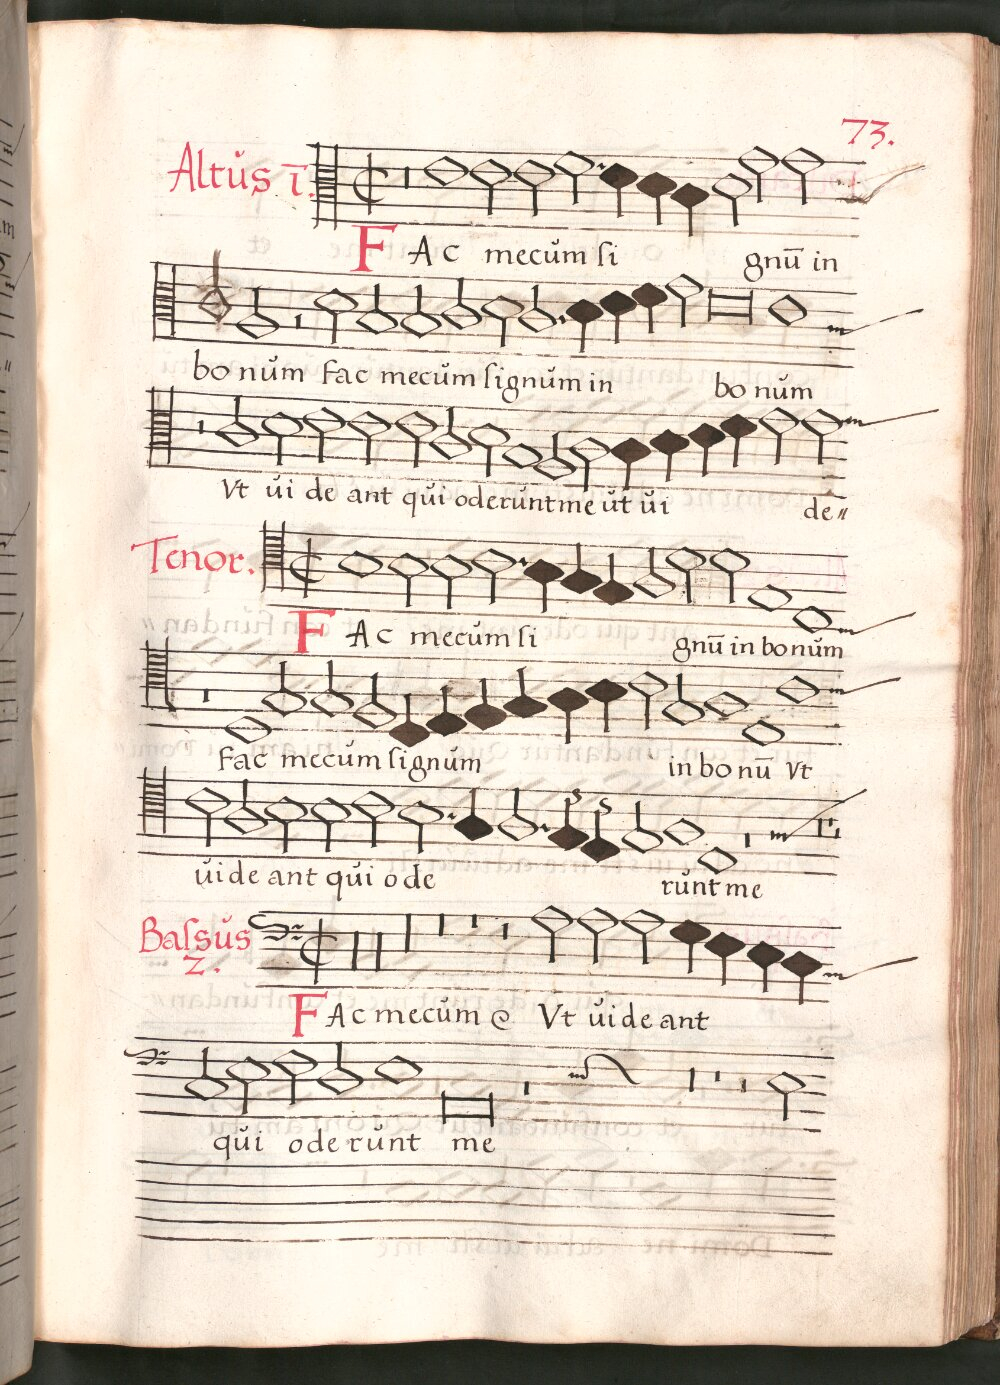 73.
Altus ī.
FAc mecum si gnū in
bo num Fac mecum signum in bo num
Vt ui de ant qui oderunt me ut ui de〃
Tenor.
FAc mecum si gnū in bonum
Fac mecum signum in bo nū Vt
ui de ant qui o de runt me
Bassus
2.
FAc mecum Vt ui de ant
qui ode runt me